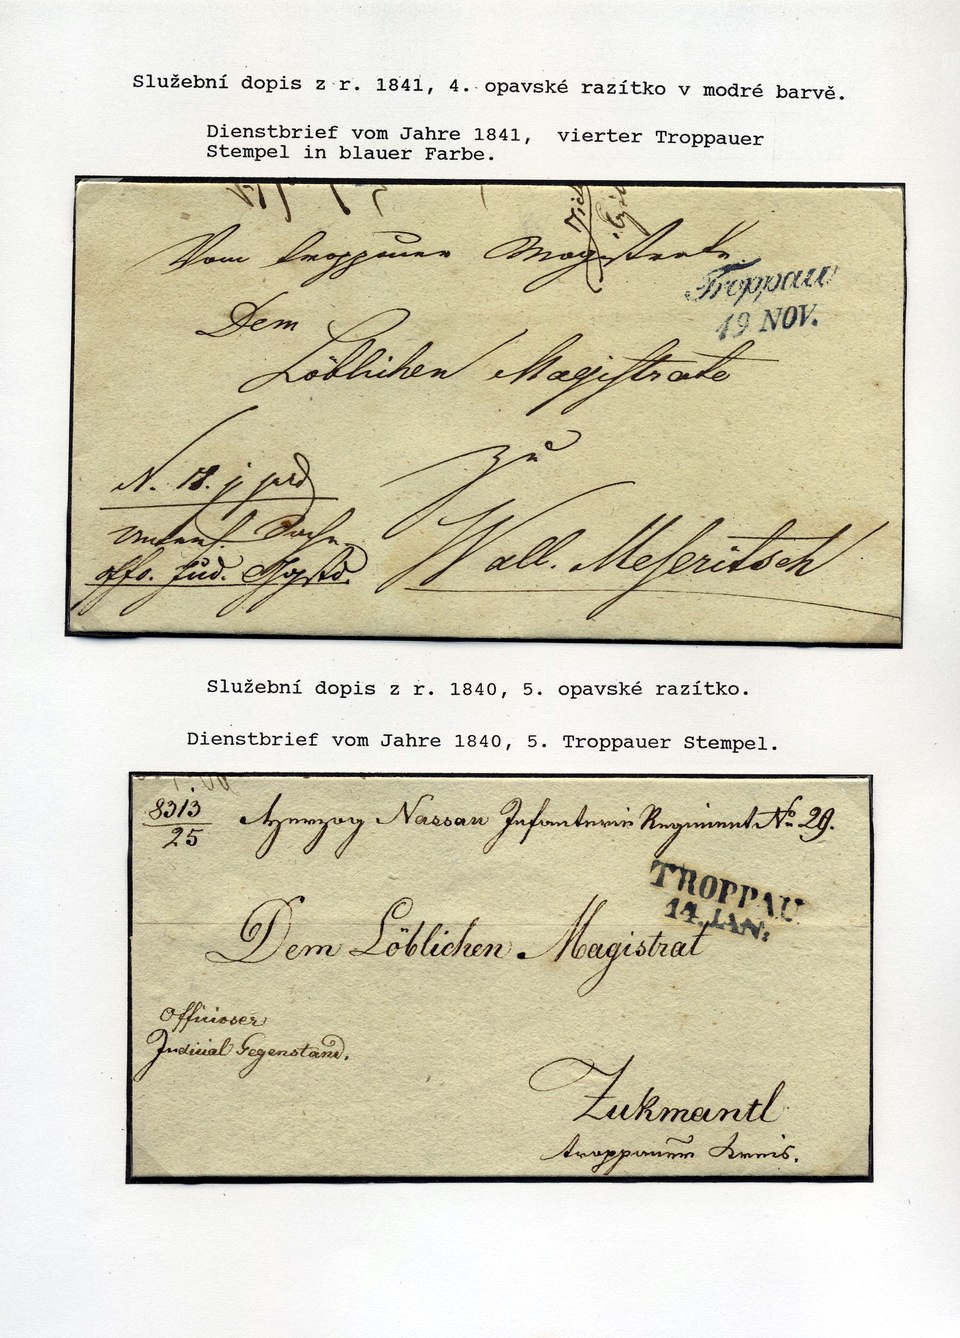 Služební dopis z r. 1841, 4. opavské razítko v modré barvě.
Dienstbrief vom Jahre 1841, vierter Troppauer
Stempel in blauer Farbe.
Vom Troppauer Magistrate
Troppau
19 NOV.
Dem
Löblichen Magistrate
N. 18.
zu
Wall. Meseritsch
offo. Jud.
Služební dopis z r. 1840, 5. opavské razítko.
Dienstbrief vom Jahre 1840, 5. Troppauer Stempel.
8313
25
Herzog Nassau Infanterie Regiment No. 29.
TROPPAU
14. JAN:
Dem Löblichen Magistrat
Officioser
Judicial Gegenstand.
Zukmantl
troppauer Kreis.